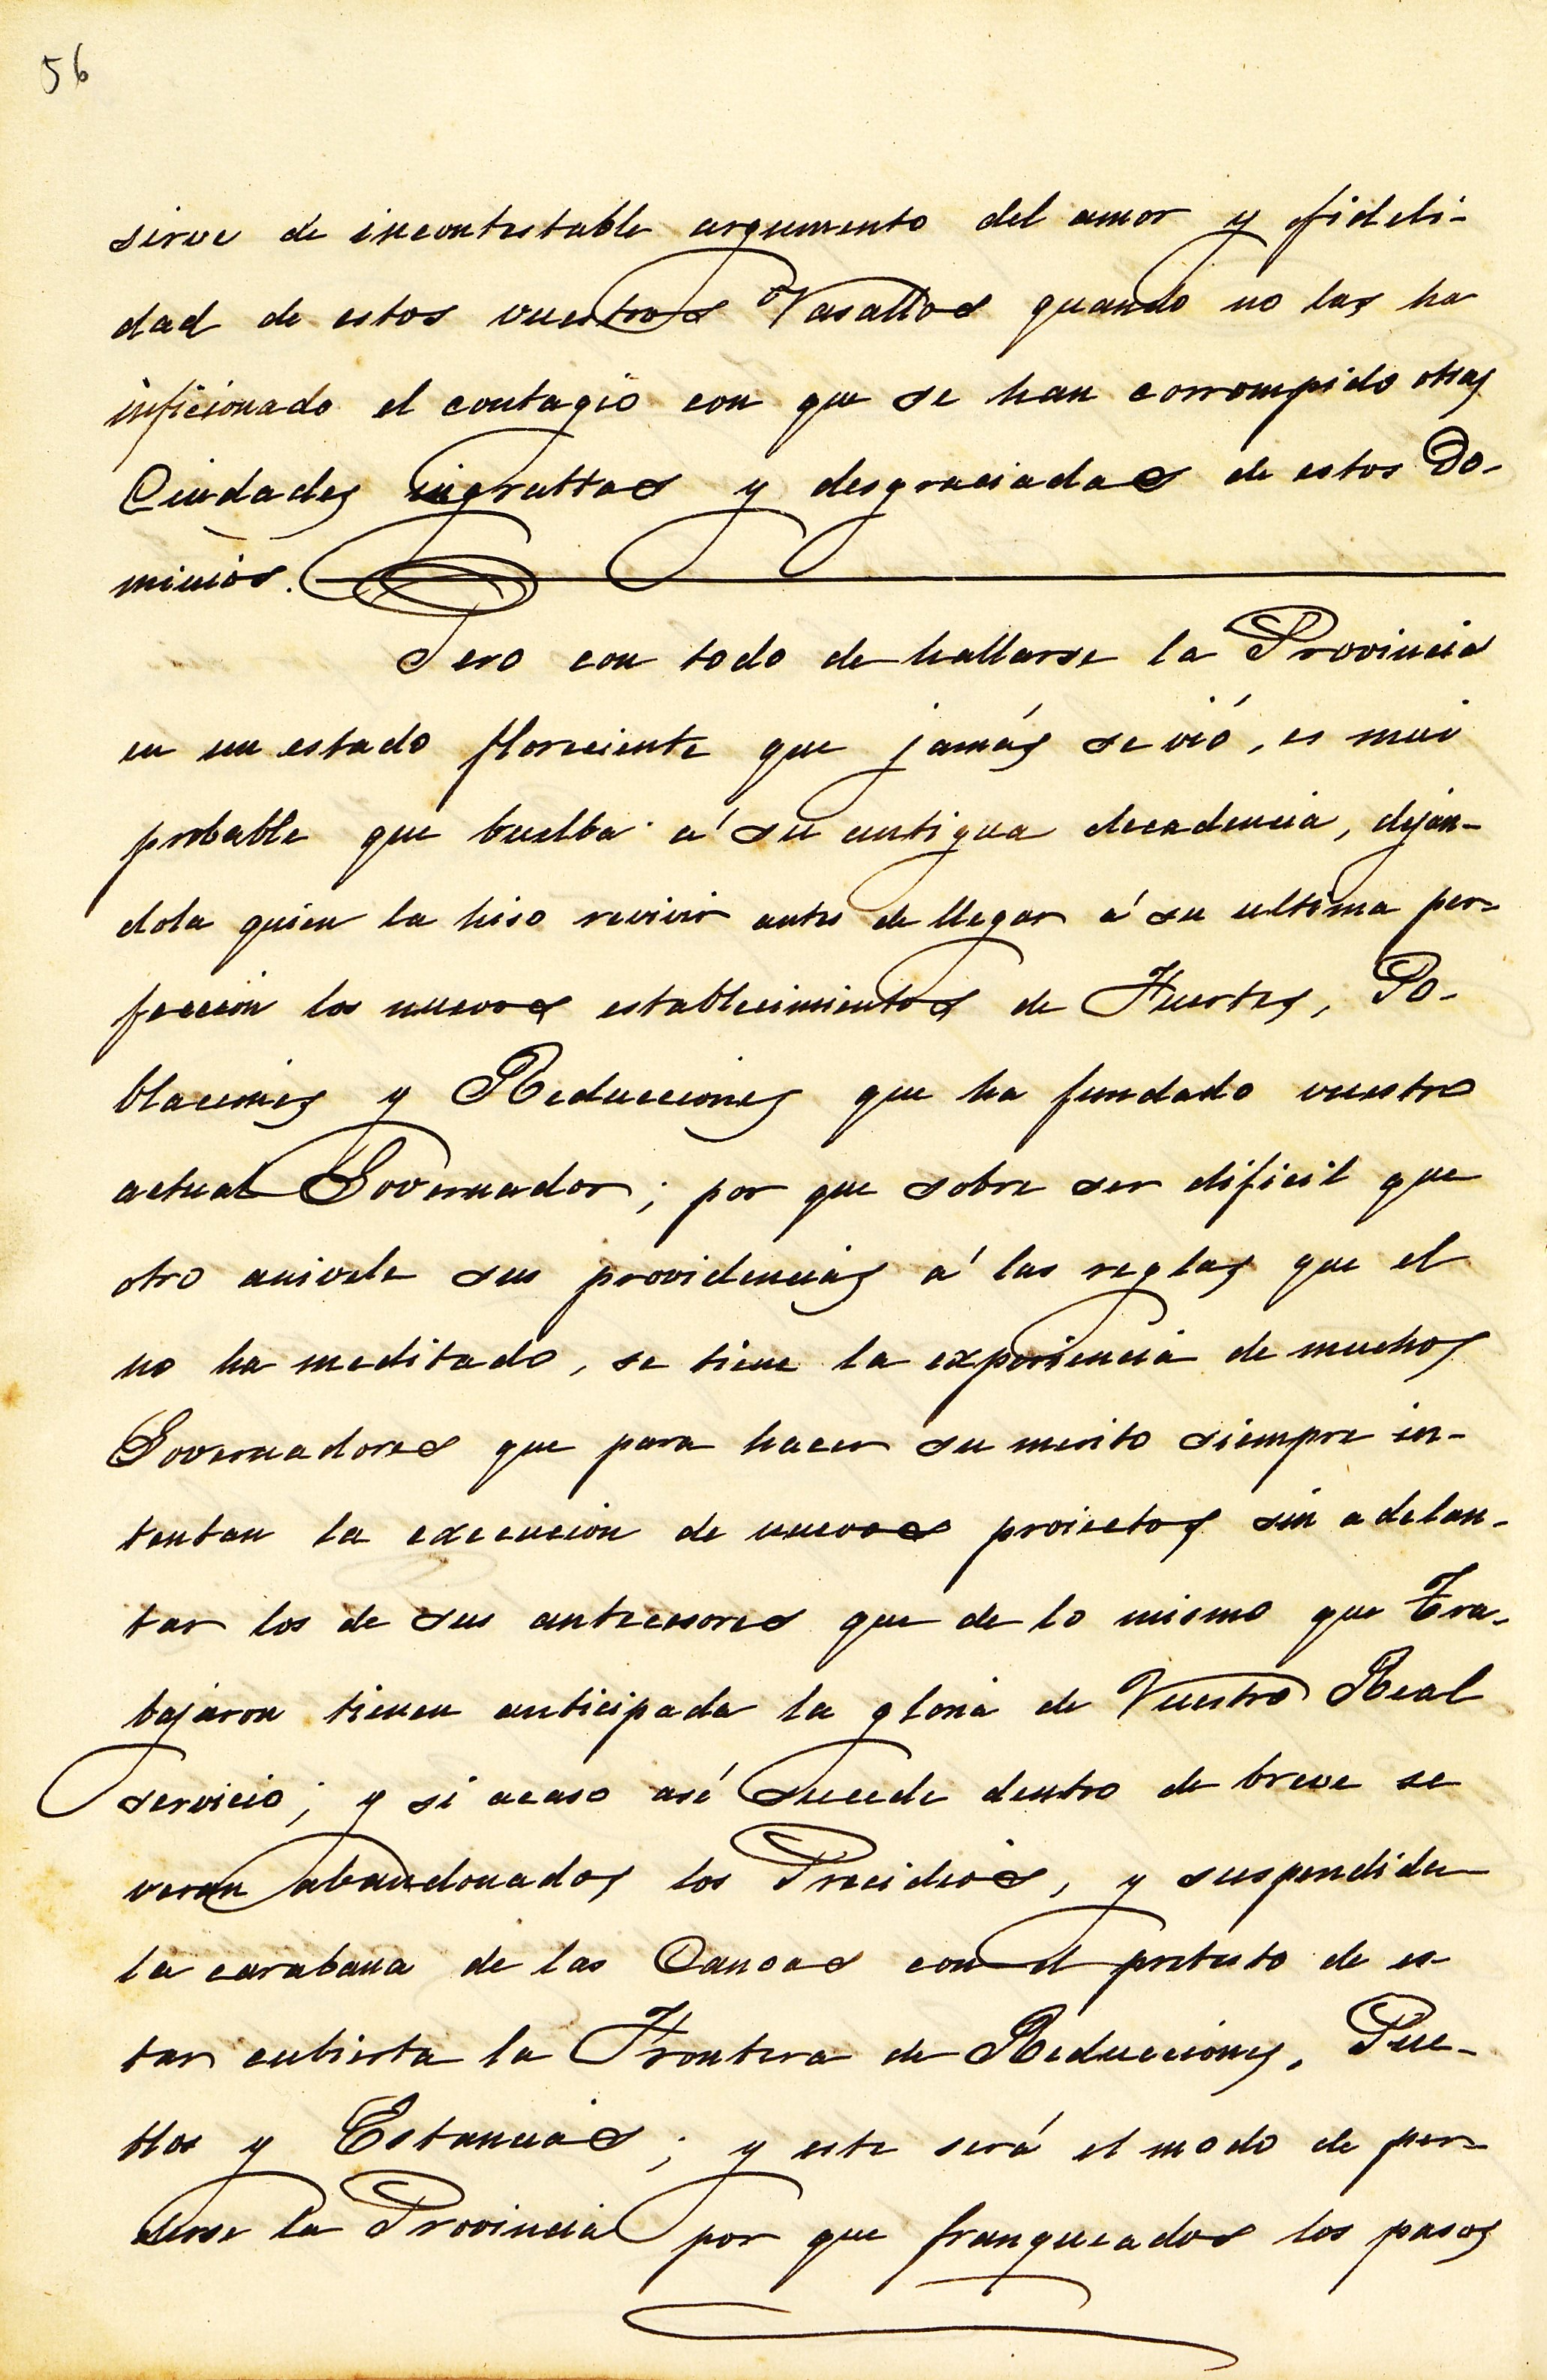 56
sirve de incontestable argumento del amor y fideli-
dad de estos vuestros Vasallos quando no las ha
inficionado el contagio con que se han corrompido otras
Ciudades ingrattas y desgraciadas de estos Do-
minios.
Pero con todo de hallarse la Provincia
en un estado floreciente que jamás se vió, es mui
probable que buelba á su antigua decadencia, dejan-
dola quien la hiso revivir antes de llegar á su ultima per-
feccion los nuevos establecimientos de Fuertes, Po-
blaciones y Reducciones que ha fundado vuestro
actual Governador; por que sobre ser dificil que
otro anivele sus providencias á las reglas que el
no ha meditado, se tiene la experiencia de muchos
Governadores que para hacer su merito siempre in-
tentan la execucion de nuevos proiectos sin adelan-
tar los de sus antecesores que de lo mismo que Tra-
bajaron tienen anticipada la gloria de Vuestro Real
servicio; y si acaso asé sucede dentro de breve se
veran abandonados los Precidios, y suspendida
la carabana de las Canoas con el pretesto de es-
tar cubierta la Frontera de Reducciones, Pue-
blos y Estancias; y este será el modo de per-
derse la Provincia por que franqueados los pasos